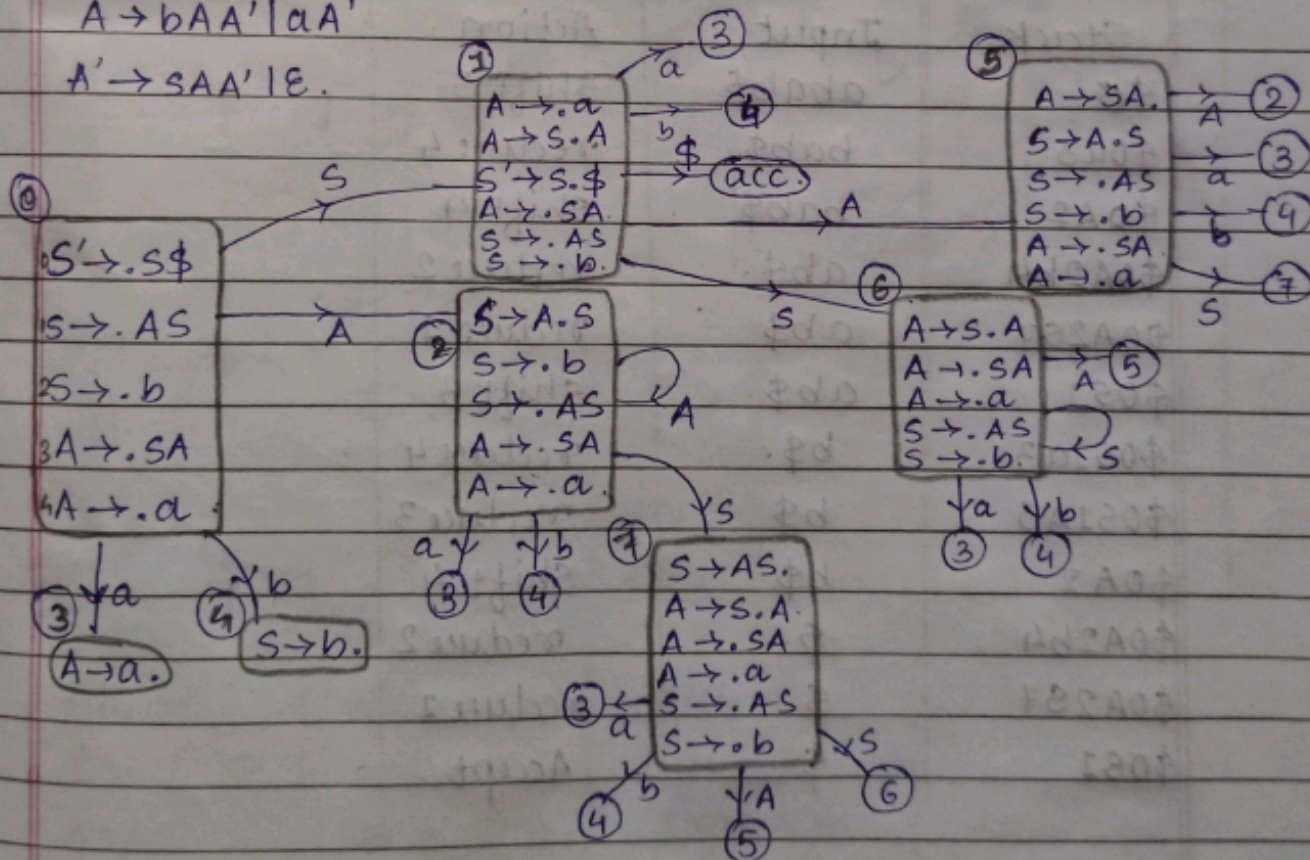 A → bAA' | aA'
A' → SAA' | ε.
0
S' → .S$
1 S → .AS
2 S → .b
3 A → .SA
4 A → .a
S
A
a
3
A → a.
b
4
S → b.
1
A → .a
A → S.A
S' → S.$
A → .SA
S → .AS
S → .b.
a
3
b
4
$
acc.
A
S
2
S → A.S
S → .b
S → .AS
A → .SA
A → .a.
A
S
a
3
b
4
5
A → SA.
S → A.S
S → .AS
S → .b
A → .SA
A → .a
A
2
a
3
b
4
S
7
6
A → S.A
A → .SA
A → .a
S → .AS
S → .b.
A
5
S
a
3
b
4
7
S → AS.
A → S.A.
A → .SA
A → .a
S → .AS
S → .b
a
3
b
4
A
5
S
6